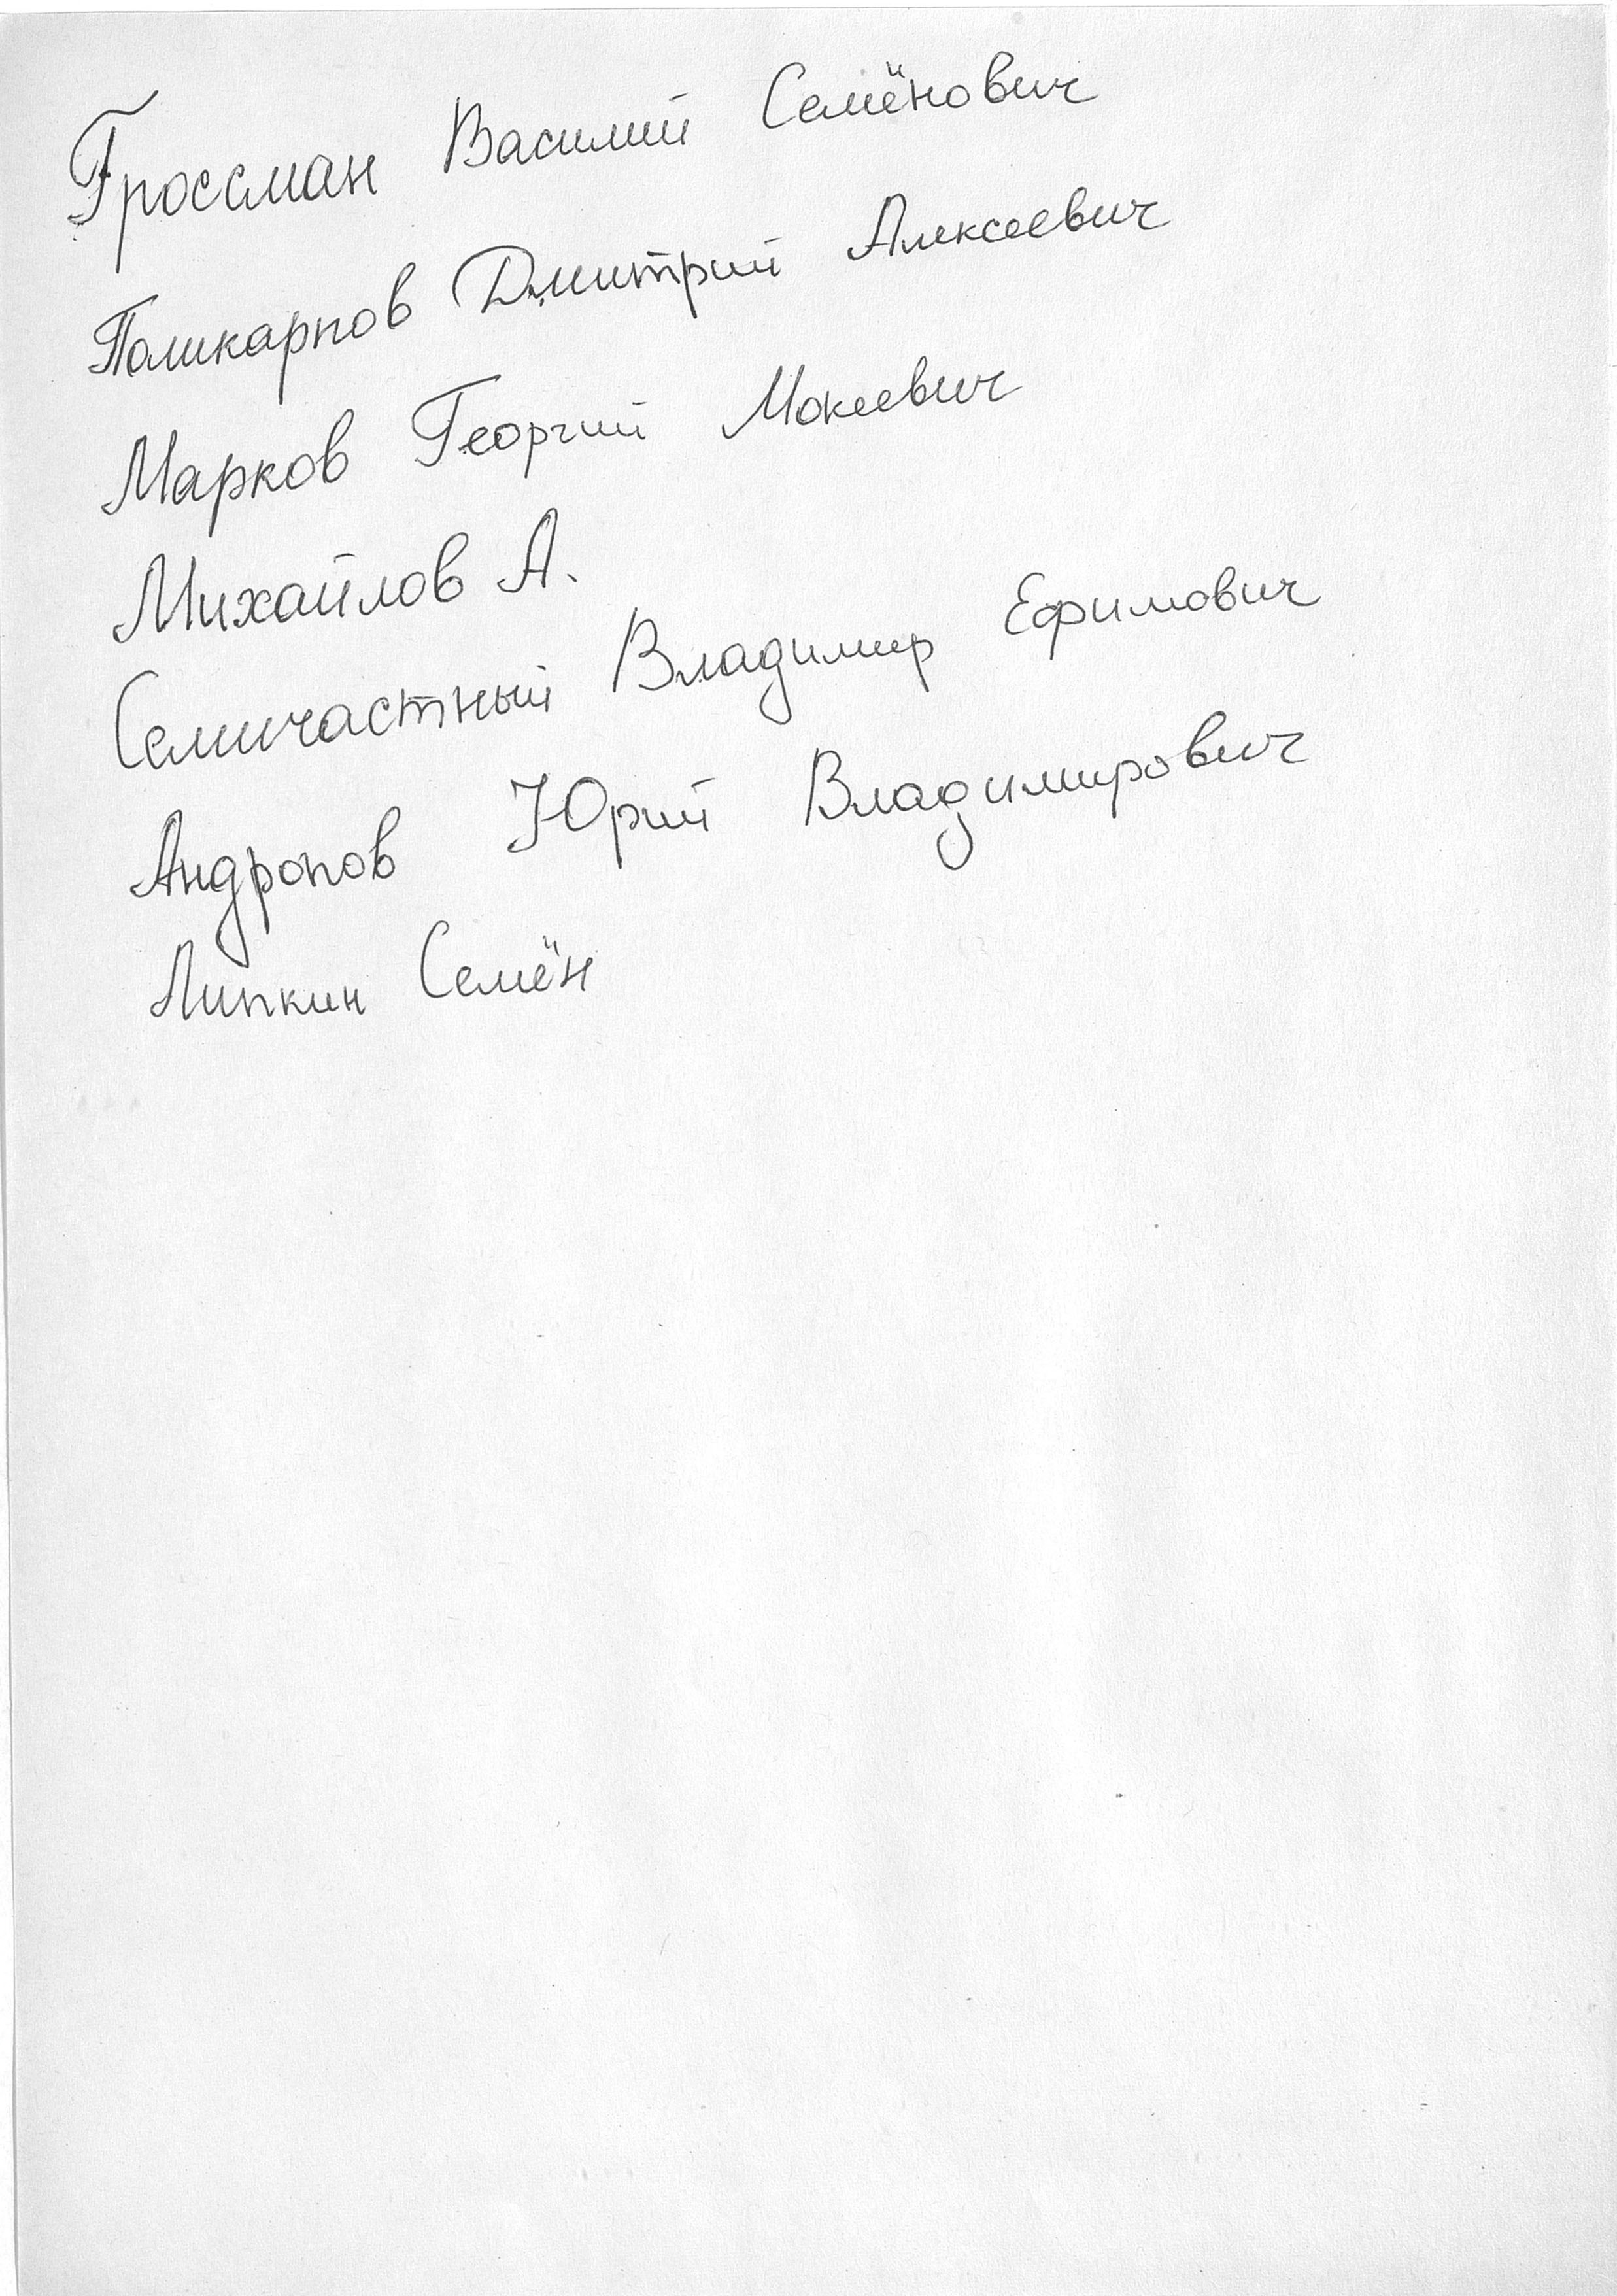 Гроссман Василий Семёнович
Поликарпов Дмитрий Алексеевич
Марков Георгий Мокеевич
Михайлов А.
Семичастный Владимир Ефимович
Андропов Юрий Владимирович
Липкин Семён